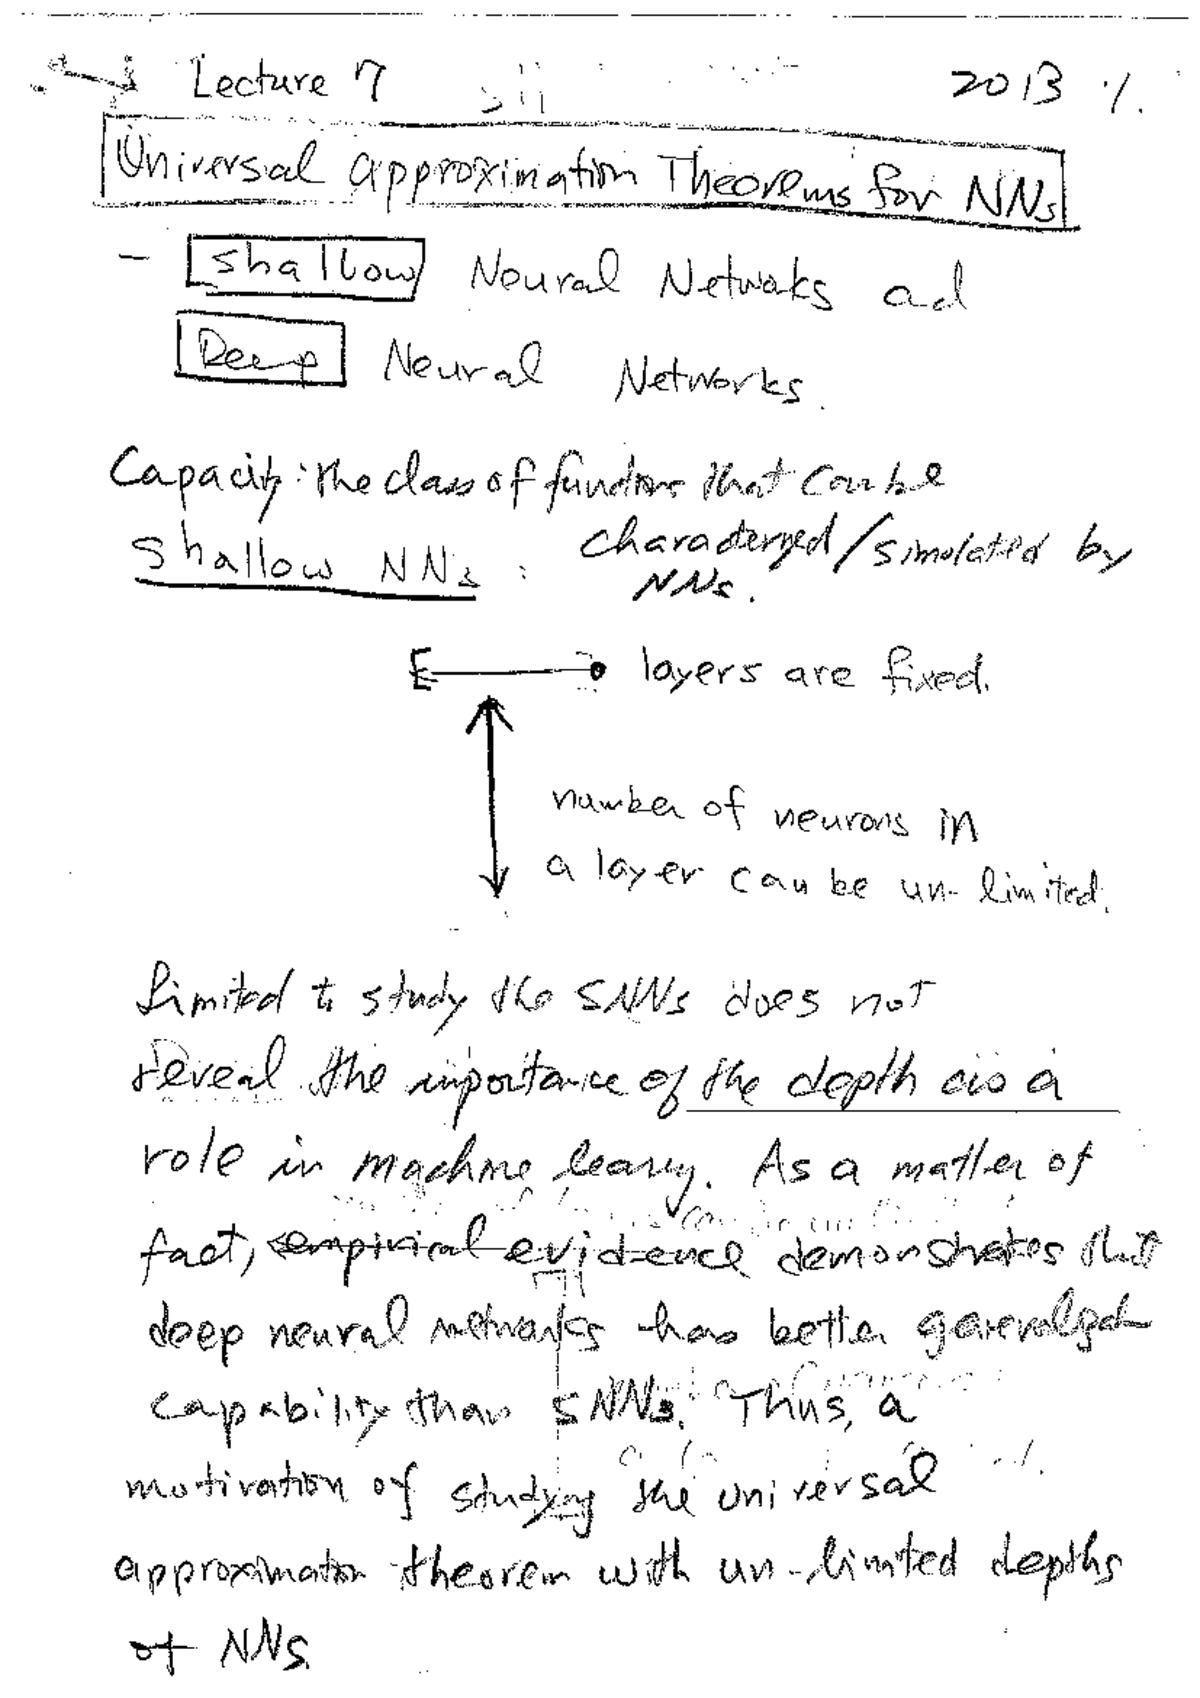 Lecture 7 2013
Universal approximation Theorems for NNs
- shallow Neural Netwoks ad
Deep Neural Networks.
Capacity: the class of functions that can be
characterized/simulated by
NNs.
Shallow NNs :
layers are fixed.
number of neurons in
a layer can be un-limited.
Limited to study the SNNs does not
reveal the importance of the depth as a
role in machine learning. As a matter of
fact, empirical evidence demonstrates that
deep neural networks has better generalizat
capability than SNNs. Thus, a
motivation of studying the universal
approximation theorem with un-limited depths
of NNs.